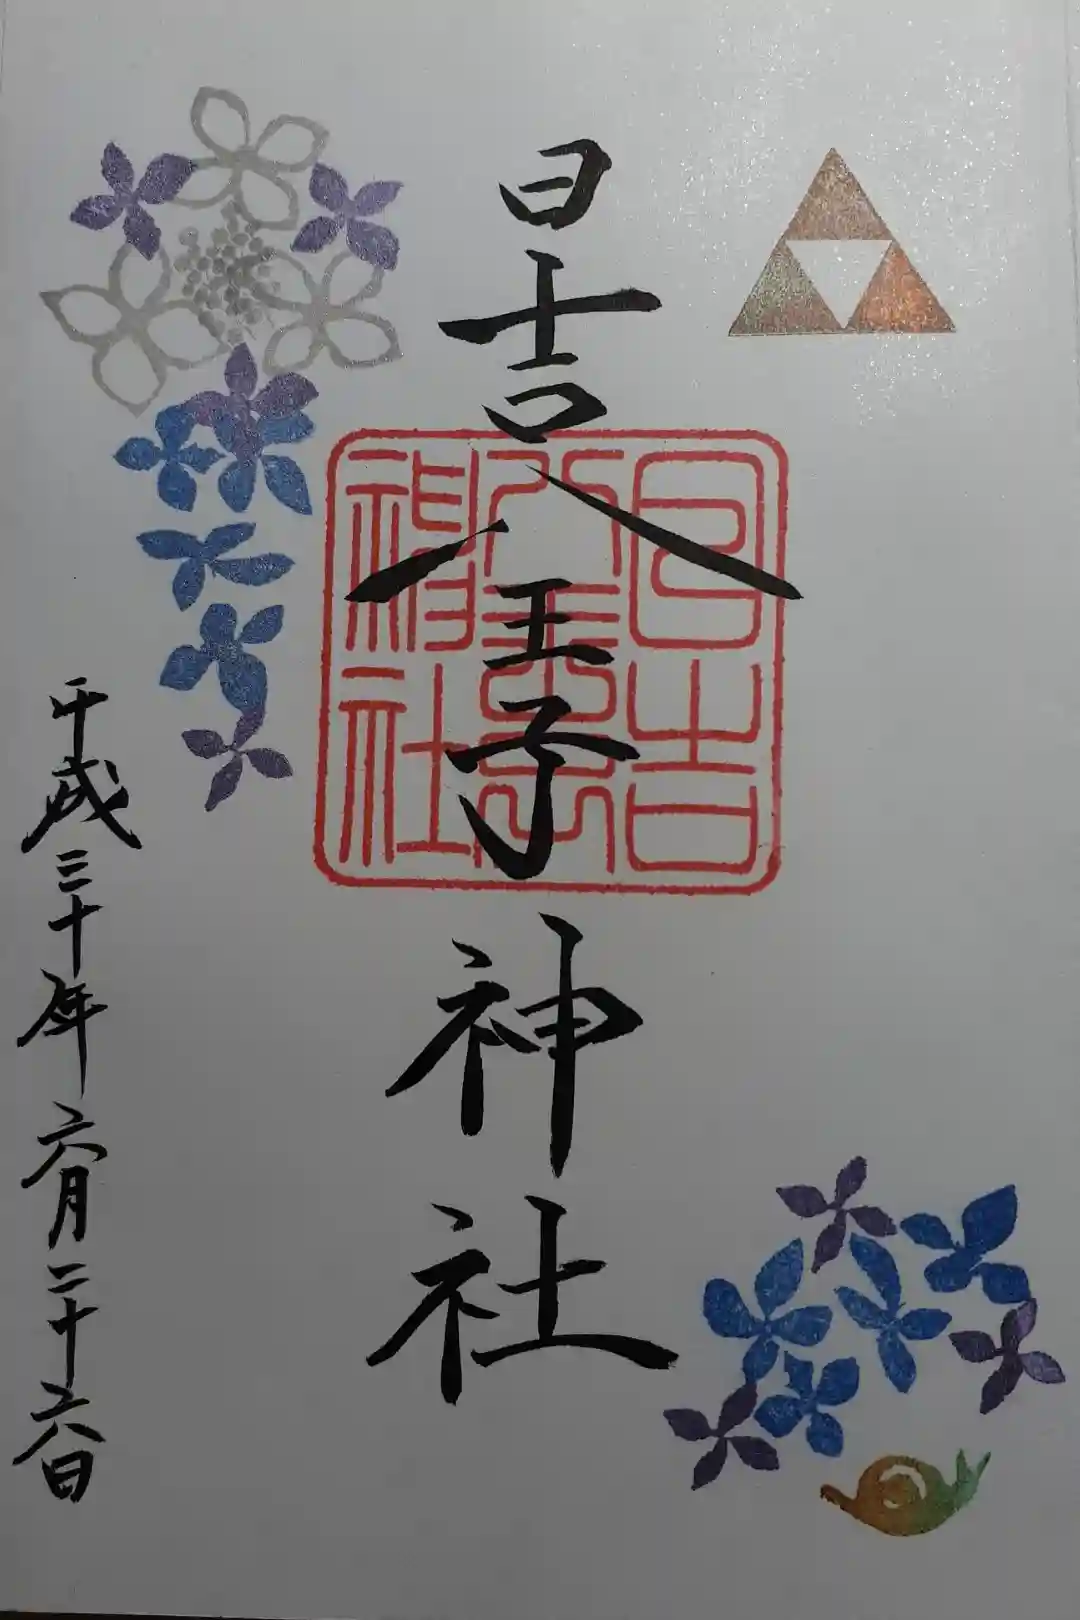 日吉八王子神社
日吉八王子神社
平成三十年六月二十六日